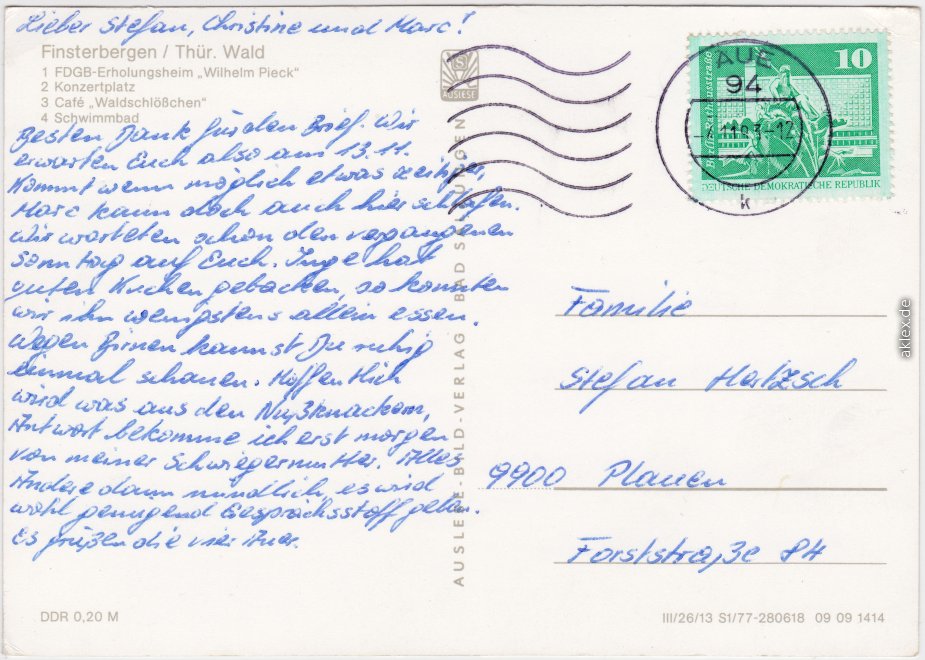 Lieber Stefan, Christine und Marc!
Finsterbergen / Thür. Wald
1 FDGB-Erholungsheim „Wilhelm Pieck"
2 Konzertplatz
3 Café „Waldschlößchen"
4 Schwimmbad
Besten Dank für den Brief. Wir
erwarten Euch also am 13.11.
Kommt wenn möglich etwas zeitiger,
Marc kann doch auch hier schlafen.
Wir warteten schon den vergangenen
Sonntag auf Euch. Inge hat
guten Kuchen gebacken, so konnten
wir ihn wenigstens allein essen.
Wegen Birnen kannst Du ruhig
einmal schauen. Hoffentlich
wird was aus den Nußknackern,
Antwort bekomme ich erst morgen
von meiner Schwiegermutter. Alles
Andere dann mündlich, es wird
wohl genügend Gesprächsstoff geben.
Es grüßen die vier Auer.
DDR 0,20 M
S
AUSLESE
AUSLESE-BILD-VERLAG BAD SALZUNGEN
AUE
94
k
10
DEUTSCHE DEMOKRATISCHE REPUBLIK
Familie
Stefan Hertzsch
9900 Plauen
Forststraße 84
III/26/13 S1/77-280618 09 09 1414
aklex.de